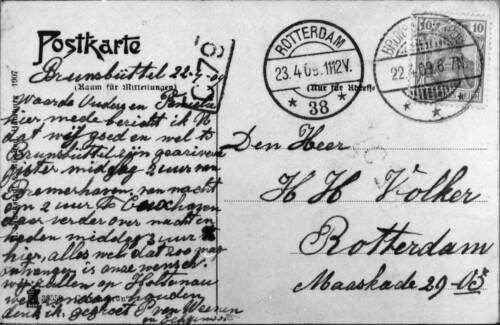 Postkarte
Brunsbüttel 22-4-09
(Raum für Mitteilungen)
Waarde Ouders en Familie
hier mede bericht ik U
dat wij goed en wel te
Brunsbüttel zijn gearriveerd
gister middag 2 uur van
Bremerhaven, van nacht
om 2 uur te Cuxhaven
daar verder over nacht en
heden middag 2 uur
hier, alles wel dat zoo mag
ontvangen is onze wensch
wij zullen op Holtenau
denk ik. gegroet P van Weenen
ROTTERDAM
23.4.09.1112V.
38
22.4.09.6-7N.
10
10
(Nur für Adresse)
Den Heer
H H Volker
Rotterdam
Maaskade 29-03